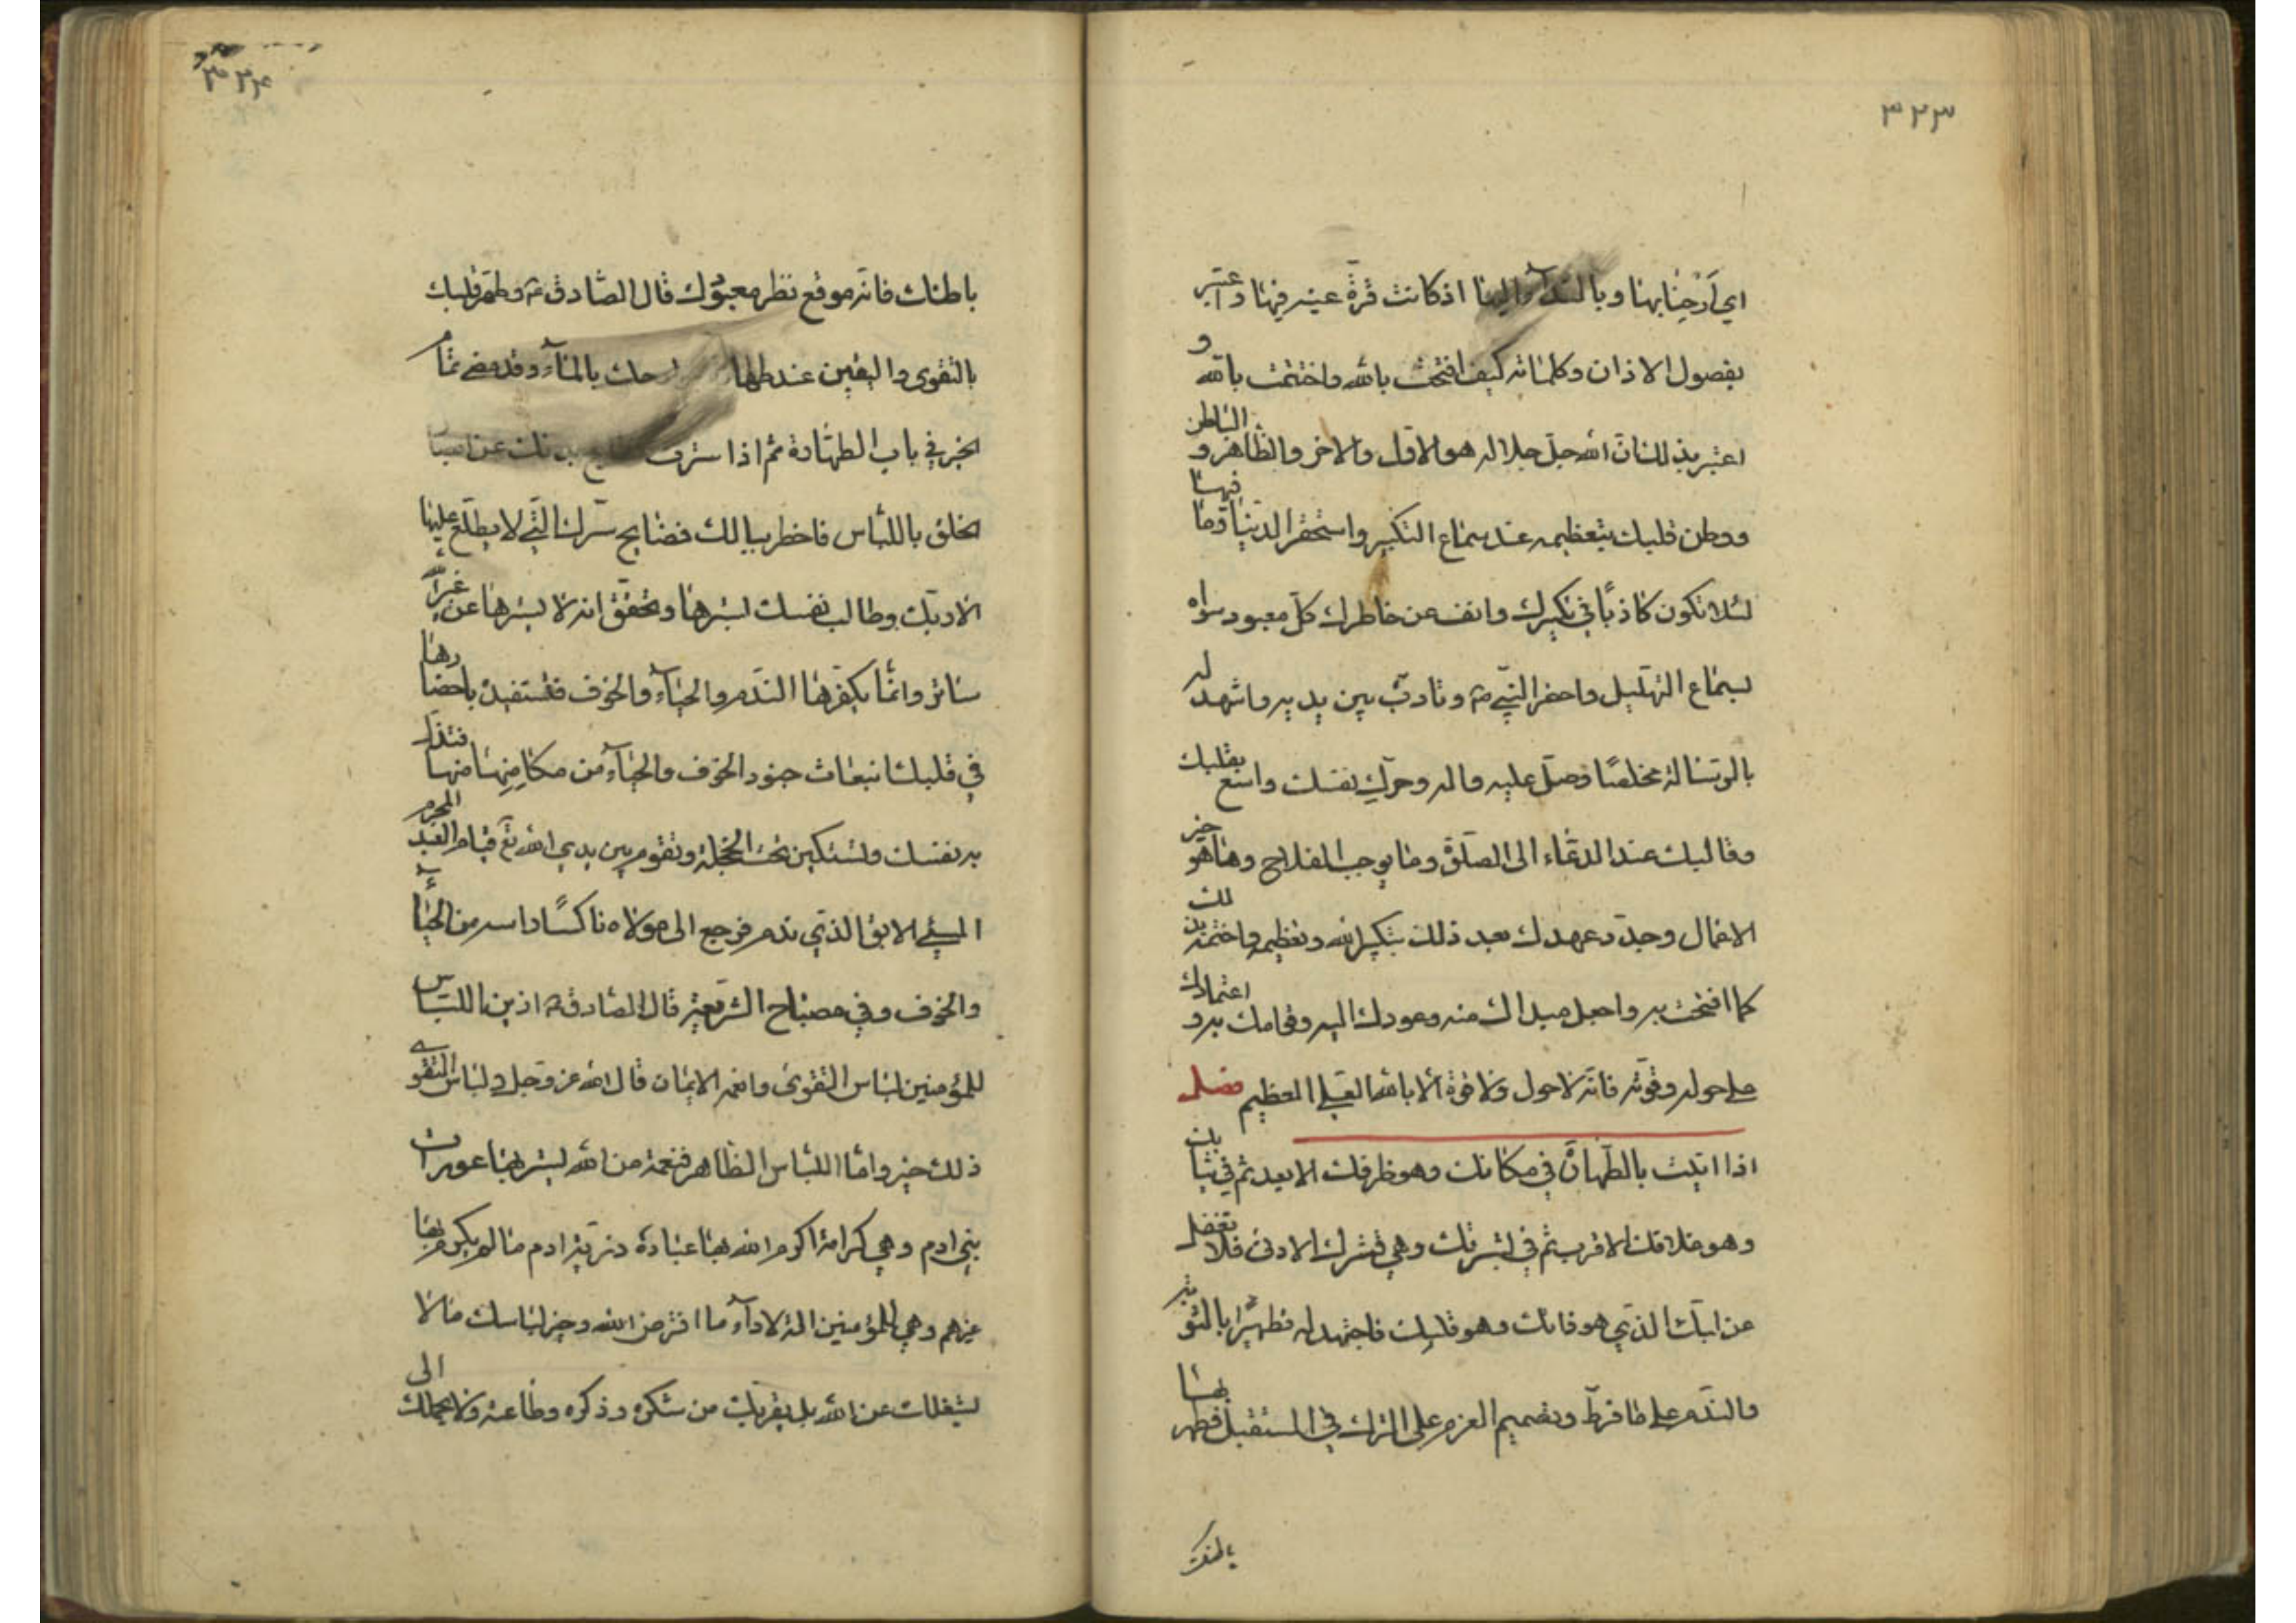 ٣٢٣
اي ارحنا بها وبالندآء اليها اذ كانت قرّة عينه فيها واعتبر
بفصول الاذان وكلماته كيف افتتحت بالله واختتمت بالله و
اعتبر بذلك ان الله جل جلاله هو الاول والاخر والظاهر والباطن
ووطن قلبك بتعظيمه عند سماع التكبير واستحقر الدنيا وما فيها
لئلا تكون كاذبًا في تكبيرك وانف عن خاطرك كلّ معبود سواه
لسماع التهليل واحضر النبي ص وتادّب بين يديه واشهد له
بالرسالة مخلصًا وصلّ عليه واله وحرّك نفسك واسع بقلبك
وقالبك عند الدعاء الى الصلوة وما يوجب الفلاح وما هو خير
الاعمال وجدّد عهدك بعد ذلك بتكبير الله وتعظيمه واختمه بذلك
كما افتتحت به واجعل مبداك منه وعودك اليه وقوامك به واعتمادك
على حوله وقوّته فانّه لا حول ولا قوة الا بالله العلي العظيم فصل
اذا اتيت بالطهارة في مكانك وهو ظرفك الابعد ثم في ثيابك
وهو غلافك الاقرب ثم في بشرتك وهي قشرك الادنى فلا تغفل
عن لبّك الذي هو ذاتك وهو قلبك فاجتهد له تطهيرًا بالتوبة
والندم على ما فرط وتصميم العزم على الترك في المستقبل فطهر بها
٣٢٤
باطنك فانه موقع نظر معبودك قال الصّادق ع وطهر قلبك
بالتقوى واليقين عند طهارة جوارحك بالمآء وقد مضى تمام
الخبر في باب الطهارة ثم اذا سترت مقابح بدنك عن ابصار
الخلق باللباس فاخطر ببالك فضايح سرّك التي لا يطلع عليها
الا ربّك وطالب نفسك بسترها وتحقق انه لا يسترها عن غير الله
ساتر وانما يكفرها الندم والحيآء والخوف فتستفيد باحضارها
في قلبك انبعاث جنود الخوف والحيآء من مكامنها فتذل
به نفسك وتستكين تحت الخجلة وتقوم بين يدي الله تع قيام العبد المجرم
المسيئ الابق الذي ندم فرجع الى مولاه ناكسًا راسه من الحيآء
والخوف وفي مصباح الشريعة قال الصادق ع ازين اللباس
للمؤمنين لباس التقوى وانعمه الايمان قال الله عز وجل ولباس التقوى
ذلك خير وامّا اللباس الظاهر فنعمة من الله يستر بها عورات
بني ادم وهي كرامة اكرم الله بها عباده ذرّية ادم ما لم يكرم بها
غيرهم وهي للمؤمنين الة لادآء ما افترض الله وخير لباسك ما لا
يشغلك عن الله بل يقرّبك من شكره وذكره وطاعته ولا يحملك الى